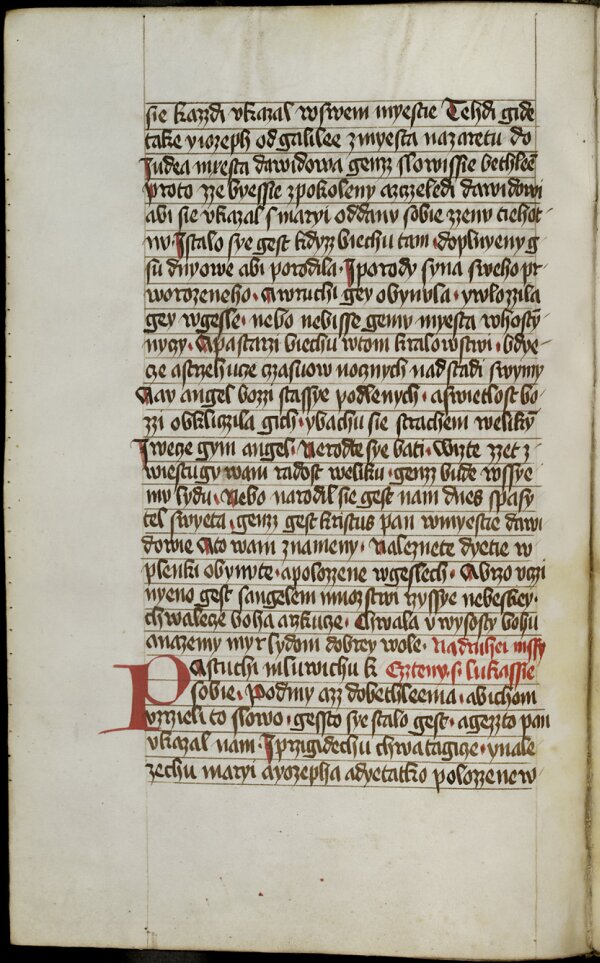 sie kazzdi vkazal wswem myestie Tehdi gide
take yiozeph od galilee zmyesta nazaretu do
Judea myesta dawidowa genz slowissie bethleē
proto zze byessie zpokoleny azczeledi dawidowi
abi sie vkazal s maryi oddanu sobie zzenu tiehot
nu Istalo sye gest kdyzz biechu tam doplnyeny g
su dnyowe abi porodila Iporody syna sweho pr
worozeneho Awruchi gey obynula ywlozzila
gey wgesle nebo nebisse gemu myesta whospo
nyczy Apastarzi biechu wtom kralowstwi bdye
cze astrzehucze czasuow nocznych nad stadi swymy
Aay angel bozzi stassye podlenych aswietlost bo
zzi obkliczila gich ybachu sie strachem welikȳ
Iwecze gym angel Nerodte sye bati Wizte zzet z
wiestugy wam radost weliku genz bude wssye
mu lydu Nebo narodil sie gest nam dnes spasy
tel swyeta genz gest kristus pan wmyestie dawi
dowie Ato wam znameny Naleznete dyetie w
plenki obynute apolozzene wgeslech Abrzo vczi
nyeno gest sangelem mnozstwi rzyssye nebeskey
chwalecze boha arzkucze Chwala vwysosty bohu
anazemy myr lydom dobrey wole Nadruhei mssy
Pastuchi mluwichu k Cztenye s lukassie
sobie Podmy azz dobethleema abichom
vzrzieli to slowo gessto sye stalo gest agezzto pan
vkazal nam Iprzigidechu chwatagicze ynale
zechu maryi ayozepha adyetatko polozzene w